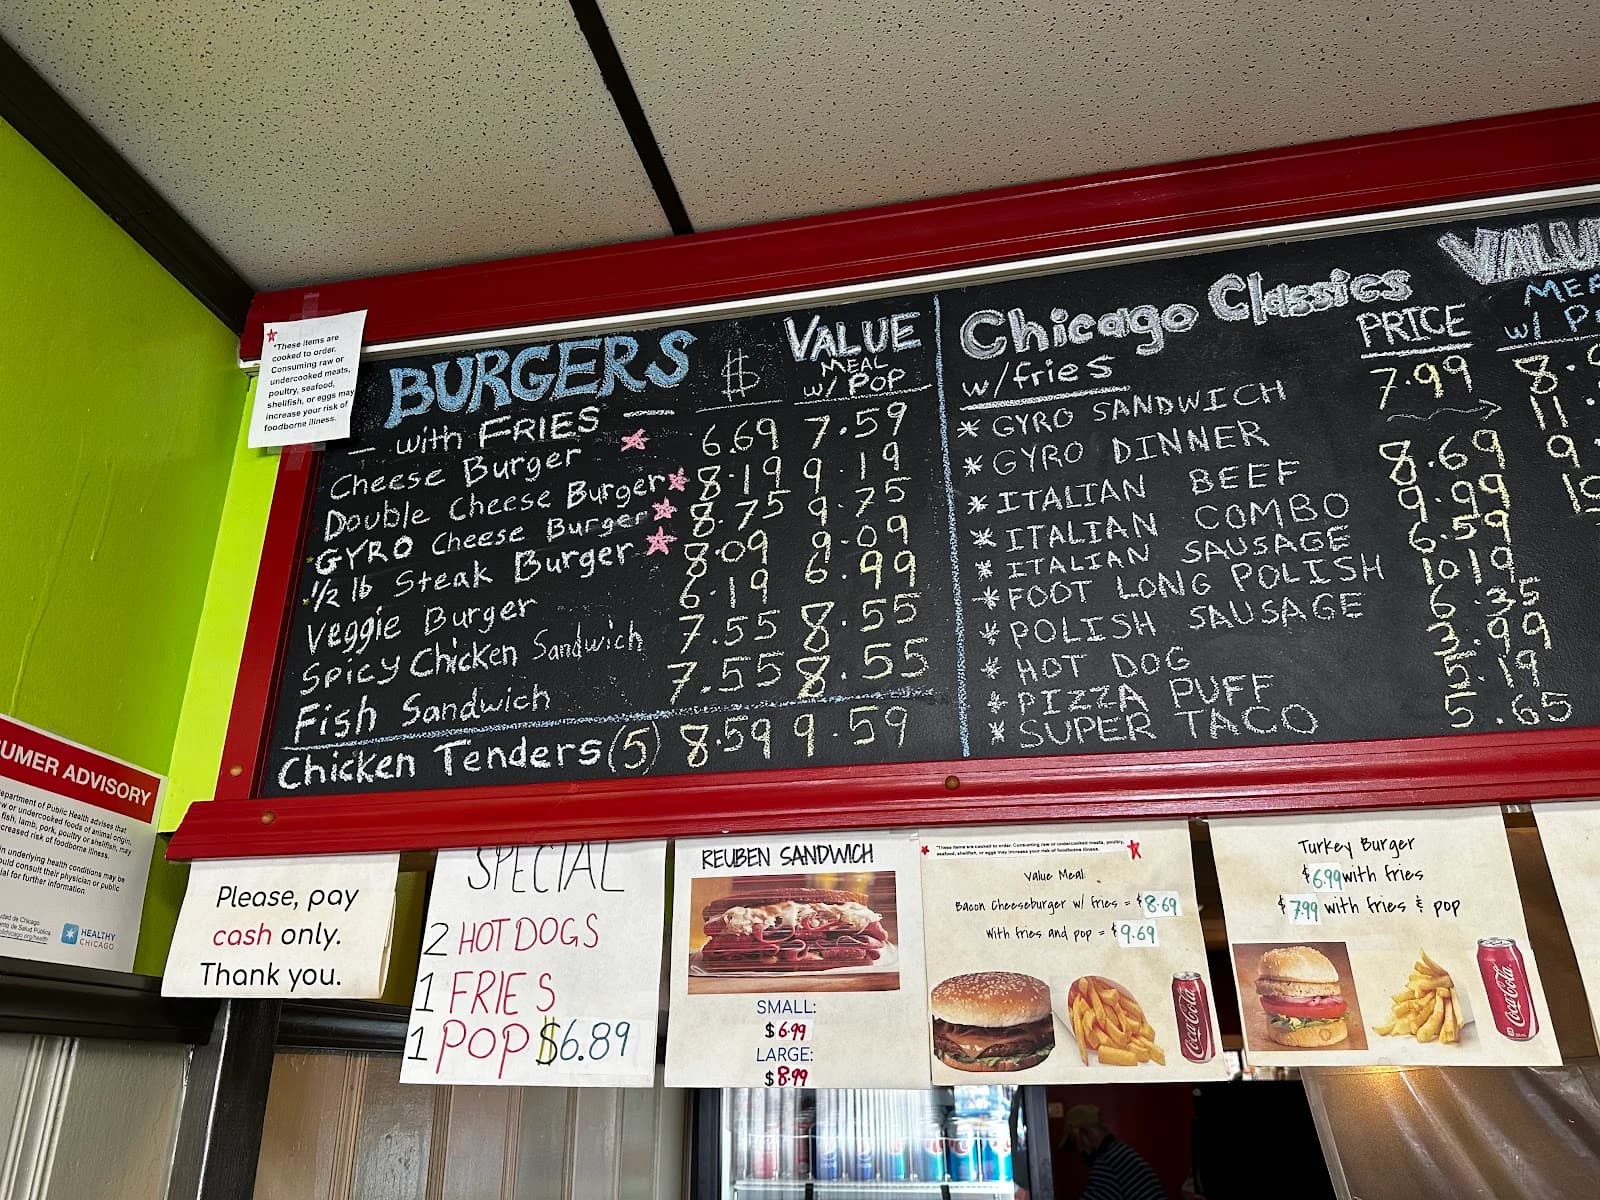 *These items are
cooked to order.
Consuming raw or
undercooked meats,
poultry, seafood,
shellfish, or eggs may
increase your risk of
foodborne illness.
BURGERS $ VALUE
MEAL
w/ POP
— with FRIES —
Cheese Burger 6.69 7.59
Double Cheese Burger 8.19 9.19
GYRO Cheese Burger 8.75 9.75
1/2 lb Steak Burger 8.09 9.09
Veggie Burger 6.19 6.99
Spicy Chicken Sandwich 7.55 8.55
Fish Sandwich 7.55 8.55
Chicken Tenders (5) 8.59 9.59
Chicago Classics PRICE
w/fries
w/
* GYRO SANDWICH 7.99 8.
* GYRO DINNER 11.
* ITALIAN BEEF 8.69 9.
* ITALIAN COMBO 9.99
* ITALIAN SAUSAGE 6.59
* FOOT LONG POLISH 10.19
* POLISH SAUSAGE 6.35
* HOT DOG 3.99
* PIZZA PUFF 5.19
* SUPER TACO 5.65
ADVISORY
Department of Public Health advises that
or undercooked foods of animal origin,
fish, lamb, pork, poultry or shellfish, may
risk of foodborne illness.
underlying health conditions may be
consult their physician or public
for further information
de Chicago
HEALTHY
CHICAGO
Please, pay
cash only.
Thank you.
SPECIAL
2 HOT DOGS
1 FRIES
1 POP $6.89
REUBEN SANDWICH
SMALL:
$6.99
LARGE:
$8.99
*These items are cooked to order. Consuming raw or undercooked meats, poultry,
seafood, shellfish, or eggs may increase your risk of foodborne illness.
Value Meal:
Bacon Cheeseburger w/ fries = $8.69
with fries and pop = $9.69
Coca-Cola
Turkey Burger
$6.99 with fries
$7.99 with fries & pop
Coca-Cola